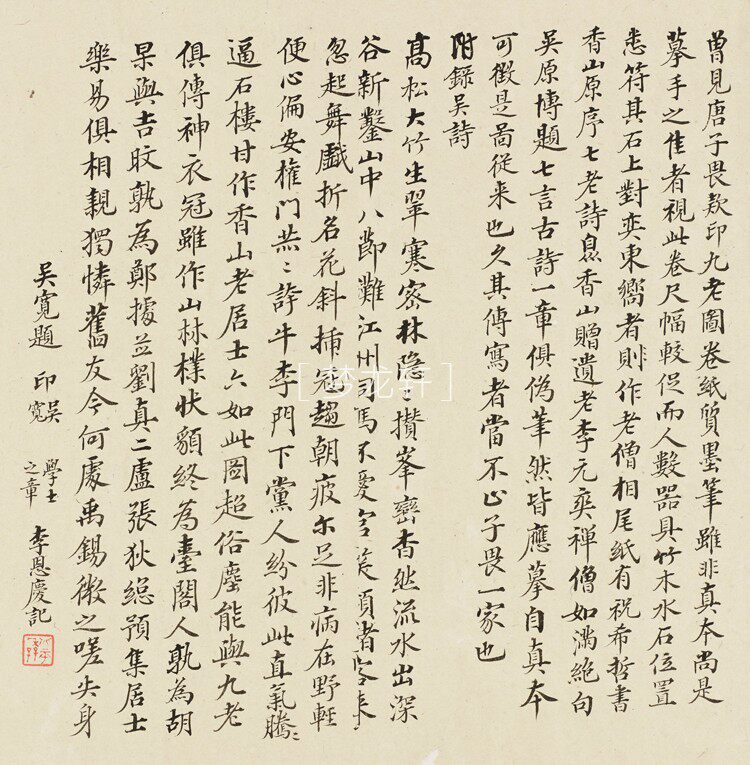 曾見唐子畏款印九老圖卷紙質墨筆雖非真本尚是
摹手之佳者視此卷尺幅較促而人數器具竹木水石位置
悉符其石上對弈東嚮者則作老僧相尾紙有祝希哲書
香山原序七老詩息香山贈遺老李元爽禪僧如滿絶句
吳原博題七言古詩一章俱偽筆然皆應摹自真本
可徵是啚從来也久其傳寫者當不止子畏一家也
附錄吳詩
髙松大竹生翠寒密林隐〻攢峯巒杳然流水出深
谷新鑿山中八節難江州司馬不憂
忽起舞戲折名花斜插冠趨朝疲尒足非病在野輕
便心偏安權門恭〻許牛李門下黨人紛彼此直氣騰〻
逼石樓甘作香山老居士六如此图超俗塵能與九老
俱傳神衣冠雖作山林樸狀貌終為臺閣人孰為胡
杲與吉旼孰為鄭據并劉真二盧張狄總預集居士
樂易俱相親獨憐舊友今何處禹錫微之嗟失身
吳寛題 印 吳寬 學士之章 李恩慶記
[梦龙轩]